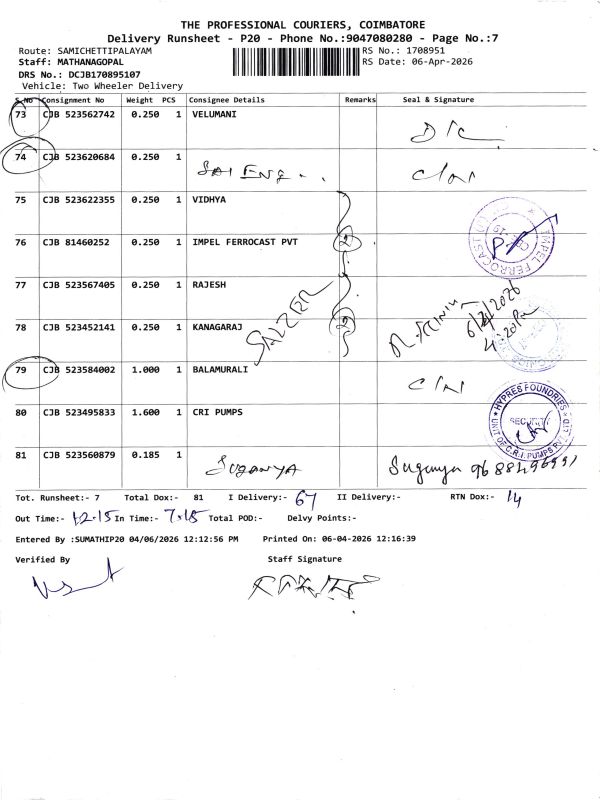 THE PROFESSIONAL COURIERS, COIMBATORE
Delivery Runsheet - P20 - Phone No.:9047080280 - Page No.:7
Route: SAMICHETTIPALAYAM
RS No.: 1708951
Staff: MATHANAGOPAL
RS Date: 06-Apr-2026
DRS No.: DCJB170895107
Vehicle: Two Wheeler Delivery
S.No Consignment No Weight PCS Consignee Details Remarks Seal & Signature
73 CJB 523562742 0.250 1 VELUMANI
74 CJB 523620684 0.250 1 SAI ENG
75 CJB 523622355 0.250 1 VIDHYA
76 CJB 81460252 0.250 1 IMPEL FERROCAST PVT 2
IMPEL FERROCAST
77 CJB 523567405 0.250 1 RAJESH
SALZER
78 CJB 523452141 0.250 1 KANAGARAJ 2
6/4/2026
4:20Pm
79 CJB 523584002 1.000 1 BALAMURALI
80 CJB 523495833 1.600 1 CRI PUMPS
HYPRES FOUNDRIES
SECURITY
UNIT OF C.R.I. PUMPS P
81 CJB 523560879 0.185 1 SUGANYA Suganya
Tot. Runsheet:- 7 Total Dox:- 81 I Delivery:- 67 II Delivery:- RTN Dox:- 14
Out Time:- 12.15 In Time:- 7.15 Total POD:- Delvy Points:-
Entered By :SUMATHIP20 04/06/2026 12:12:56 PM Printed On: 06-04-2026 12:16:39
Verified By Staff Signature